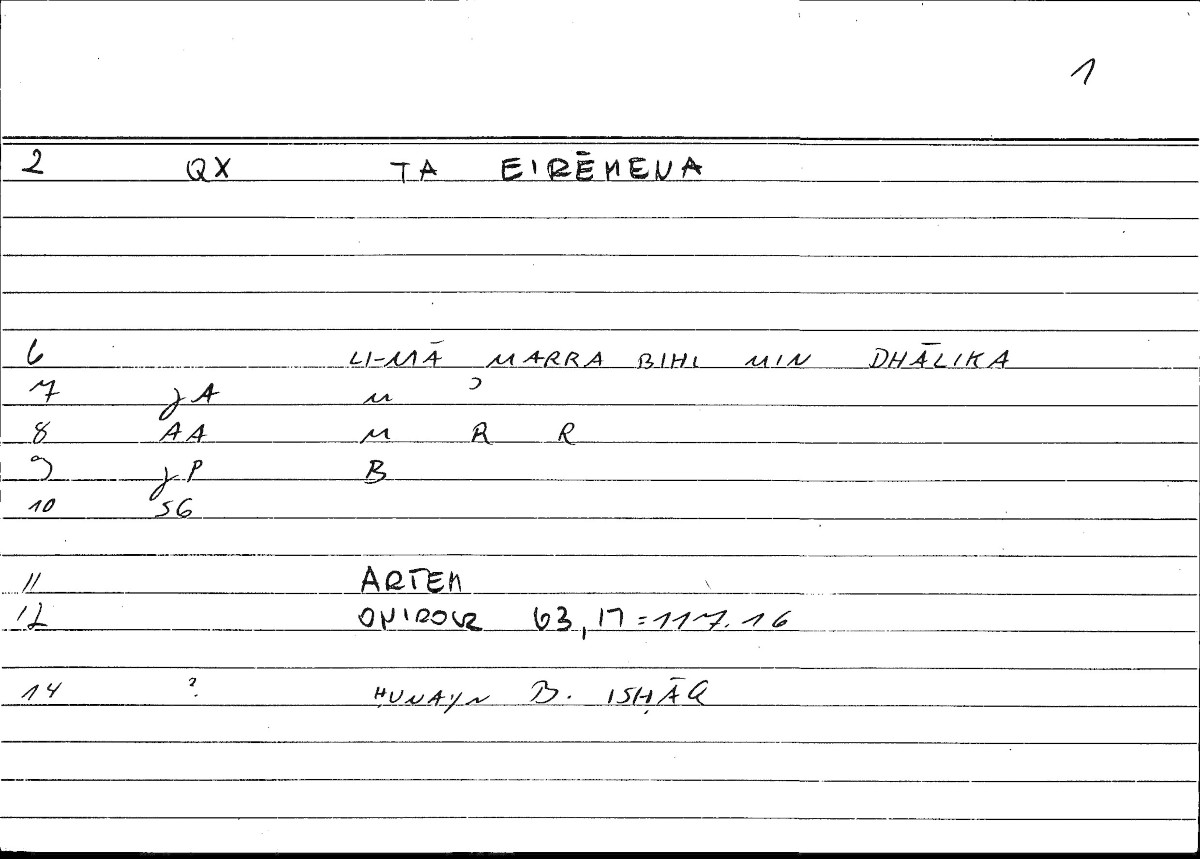 1
2 QX TA EIRĒMENA
6 LI-MĀ MARRA BIHI MIN DHĀLIKA
7 JA M ʾ
8 AA M R R
9 JP B
10 SG
11 ARTEM
12 ONIROCR 63,17=117.16
14 ? ḤUNAYN B. ISḤĀQ